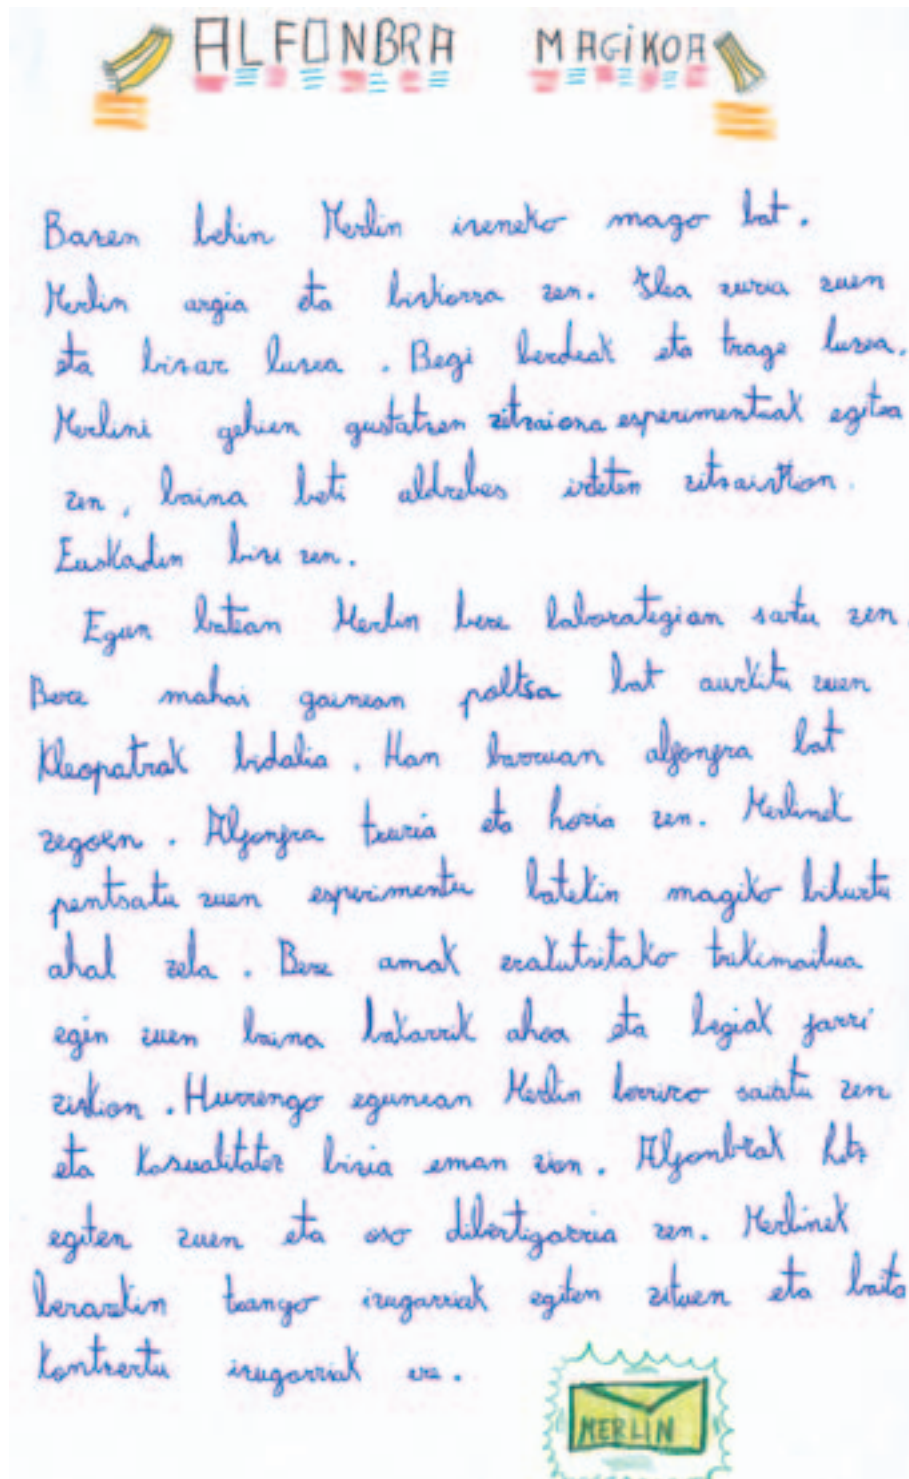 ALFONBRA MAGiKOA
Bazen behin Merlin izeneko mago bat.
Merlin argia eta bizkorra zen. Ilea zuria zuen
eta bizar luzea. Begi berdeak eta trage luzea.
Merlini gehien gustatzen zitzaiona esperimentuak egitea
zen, baina beti aldrebes irteten zitzaizkion.
Euskadin bizi zen.
Egun batean Merlin bere laborategian sartu zen.
Bere mahai gainean poltsa bat aurkitu zuen
Kleopatrak bidalia. Han barruan alfonfra bat
zegoen. Alfonfra txuria eta horia zen. Merlinek
pentsatu zuen esperimentu batekin magiko bihurtu
ahal zela. Bere amak erakutsitako trikimailua
egin zuen baina bakarrik ahoa eta begiak jarri
zizkion. Hurrengo egunean Merlin berriro saiatu zen
eta kasualitatez bizia eman zion. Alfonbrak hitz
egiten zuen eta oso dibertigarria zen. Merlinek
berarekin txango izugarriak egiten zituen eta baita
kontzertu izugarriak ere.
MERLIN